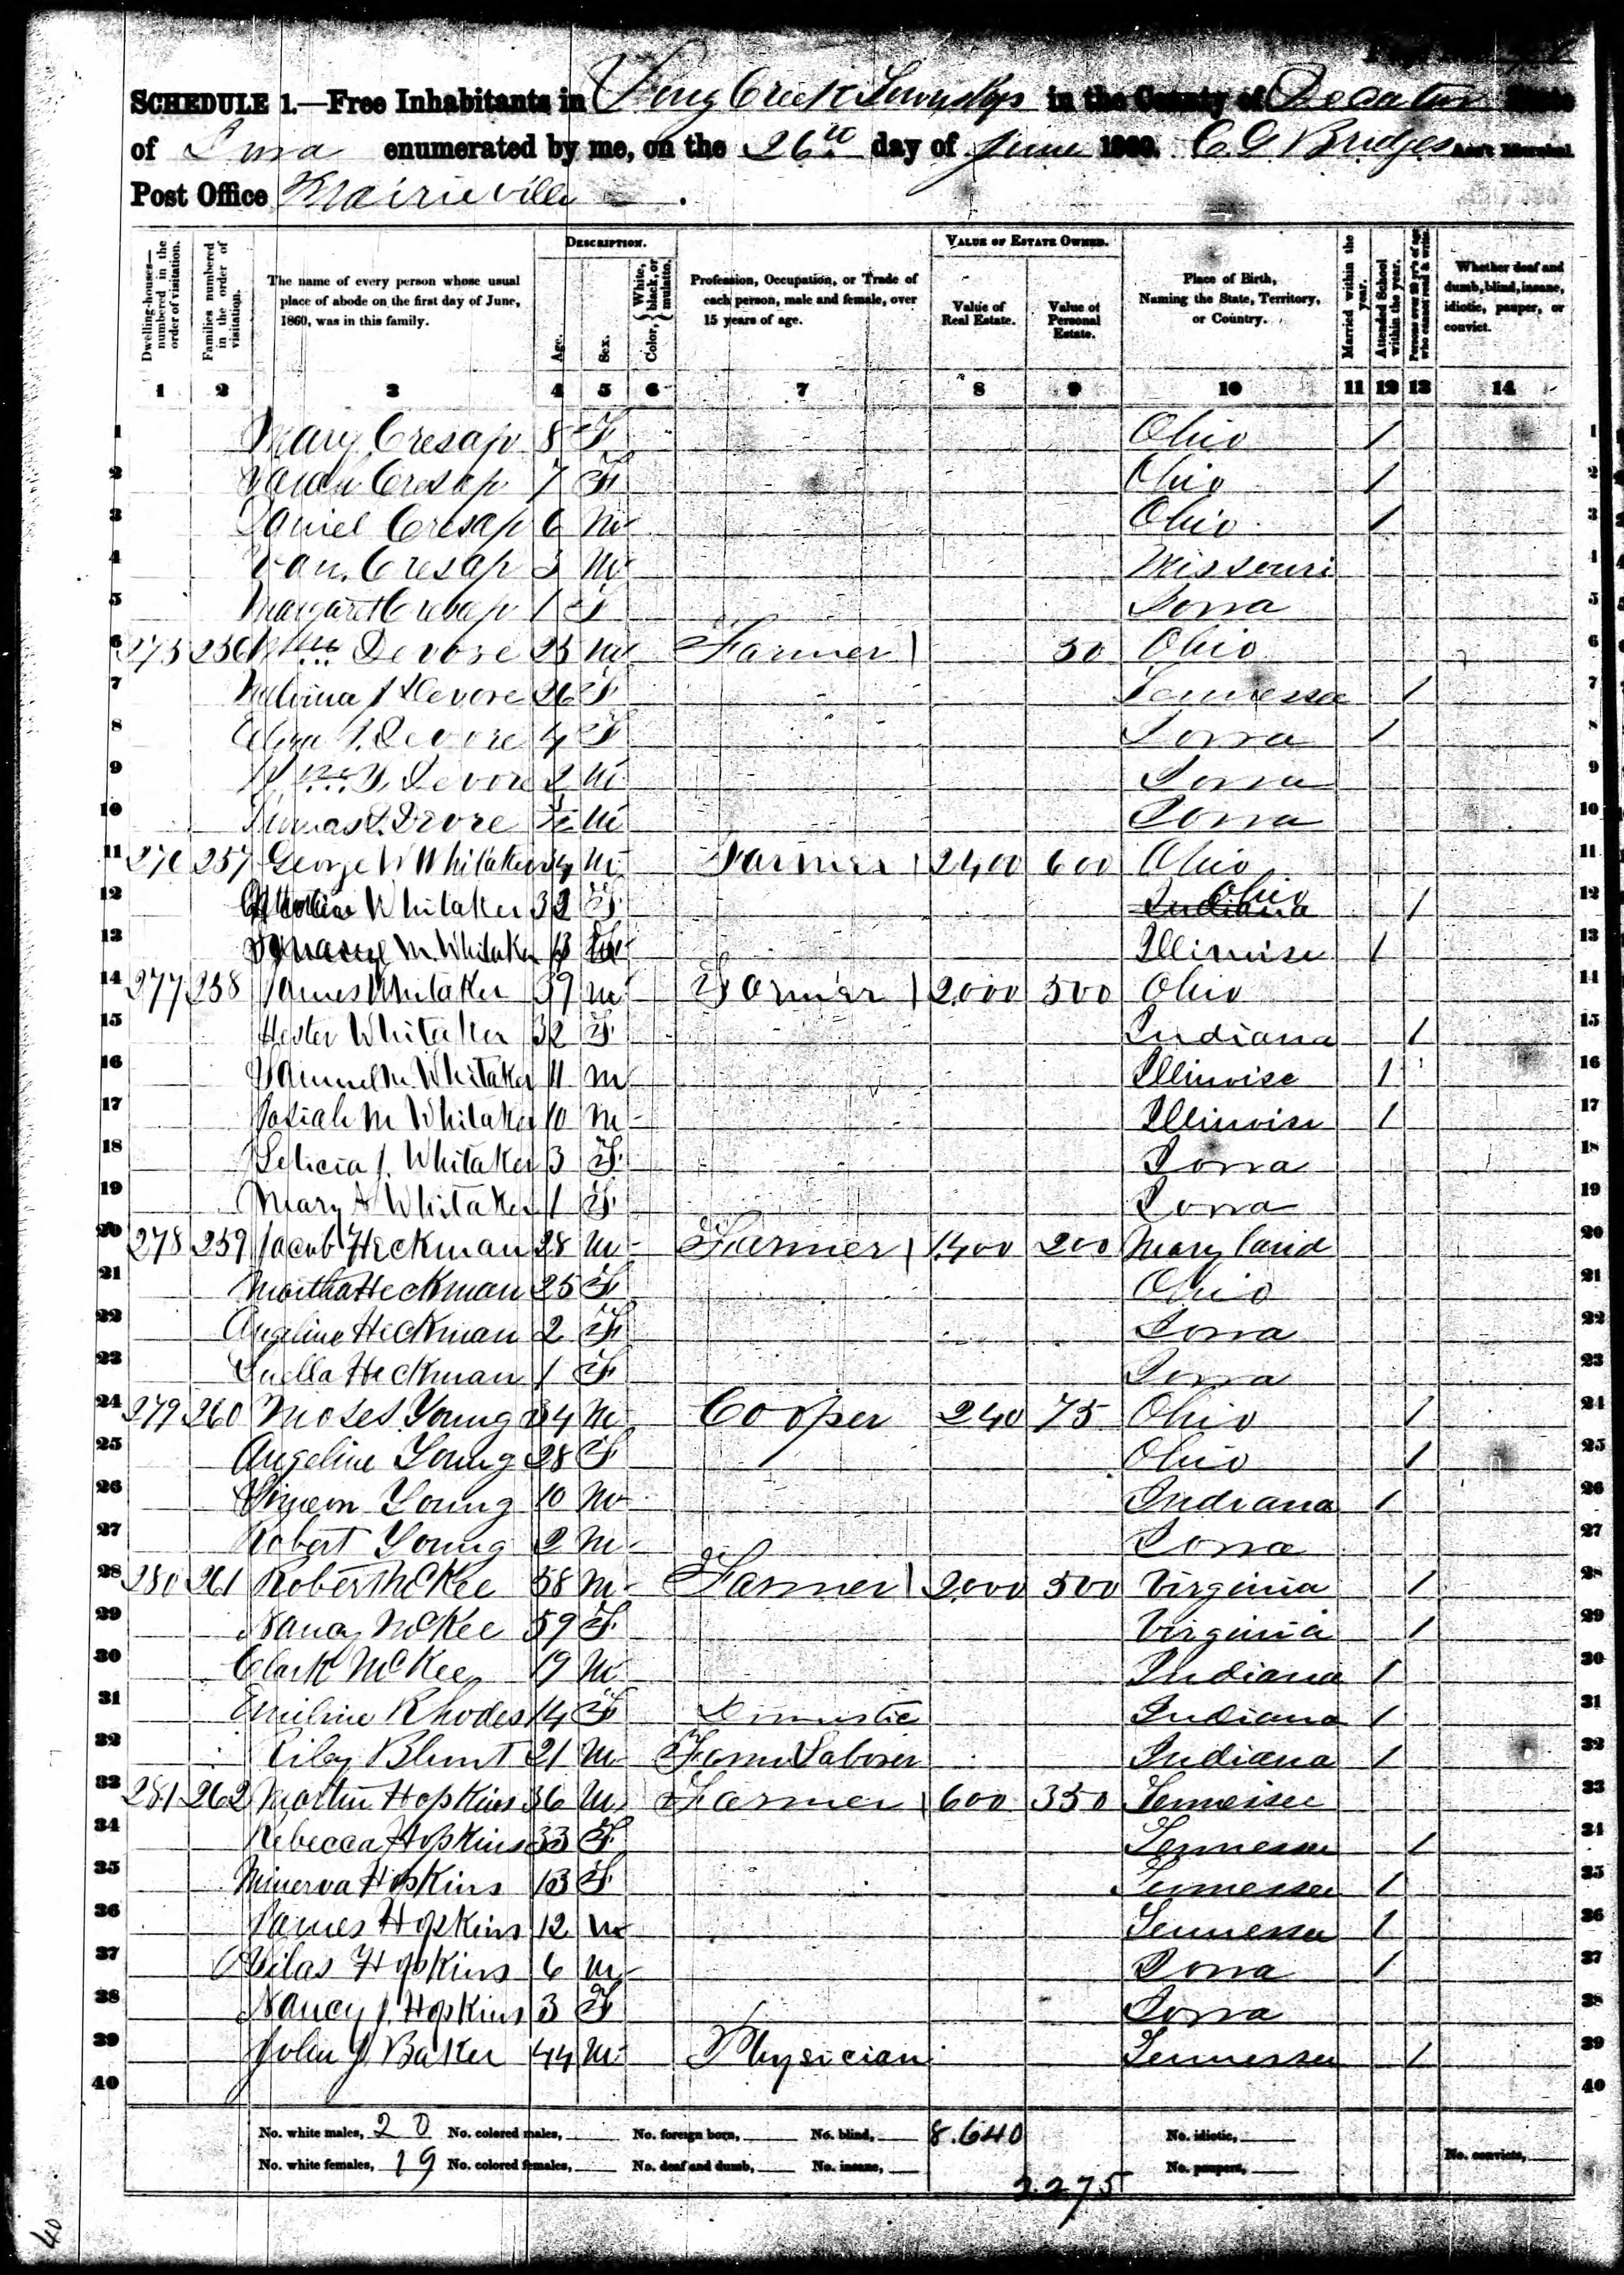 SCHEDULE 1.—Free Inhabitants in Long Creek Township in the County of Decatur State
of Iowa enumerated by me, on the 26th day of June 1860. C. G Bridges Ass't Marshal.
Post Office Prairieville
Dwelling-houses—numbered in the order of visitation.
Families numbered in the order of visitation.
The name of every person whose usual place of abode on the first day of June, 1860, was in this family.
DESCRIPTION.
Age.
Sex.
Color, { White, black, or mulatto.
Profession, Occupation, or Trade of each person, male and female, over 15 years of age.
VALUE OF ESTATE OWNED.
Value of Real Estate.
Value of Personal Estate.
Place of Birth, Naming the State, Territory, or Country.
Married within the year.
Attended School within the year.
Persons over 20 y'rs of age who cannot read & write.
Whether deaf and dumb, blind, insane, idiotic, pauper, or convict.
1 2 3 4 5 6 7 8 9 10 11 12 13 14
1 Mary Cresap 8 F Ohio / 1
2 Sarah Cresap 7 F Ohio / 2
3 Daniel Cresap 6 M Ohio / 3
4 Van. Cresap 3 M Missouri 4
5 Margaret Cresap 1 F Iowa 5
6 275 256 Wm Devore 25 M Farmer 50 Ohio 6
7 Malvina J Devore 26 F Tennessee / 7
8 Devore 4 F Iowa / 8
9 Wm Devore 2 M Iowa 9
10 Thomas Devore M Iowa 10
11 276 257 George W Whitaker 34 M Farmer 2400 600 Ohio 11
12 Whitaker 32 F Indiana Ohio / 12
13 M. Whitaker 13 Illinoise / 13
14 277 258 James Whitaker 39 M Farmer 2000 500 Ohio 14
15 Hester Whitaker 32 F Indiana / 15
16 Samuel M. Whitaker 11 M Illinoise / 16
17 Josiah M Whitaker 10 M Illinoise / 17
18 Leticia J. Whitaker 3 F Iowa 18
19 Mary A Whitaker 1 F Iowa 19
20 278 259 Jacob Heckman 28 M Farmer 1400 200 Maryland 20
21 Martha Heckman 25 F Ohio 21
22 Angeline Heckman 2 F Iowa 22
23 Luella Heckman 1 F Iowa 23
24 279 260 Moses Young 34 M Cooper 240 75 Ohio / 24
25 Angeline Young 28 F Ohio / 25
26 Simeon Young 10 M Indiana / 26
27 Robert Young 2 M Iowa 27
28 280 261 Robert McKee 58 M Farmer 2000 500 Virginia / 28
29 Nancy McKee 59 F Virginia / 29
30 Clark McKee 19 M Indiana / 30
31 Emiline Rhodes 14 F Domestic Indiana / 31
32 Riley Blunt 21 M Farm Laborer Indiana / 32
33 281 262 Martin Hopkins 36 M Farmer 600 350 Tennessee 33
34 Rebecca Hopkins 33 F Tennessee / 34
35 Minerva Hopkins 13 F Tennessee / 35
36 James Hopkins 12 M Tennessee / 36
37 Silas Hopkins 6 M Iowa / 37
38 Nancy J. Hopkins 3 F Iowa 38
39 John J. Baker 44 M Physician Tennessee / 39
40 40
No. white males, 20 No. colored males, No. foreign born, No. blind, 8.640 No. idiotic,
No. white females, 19 No. colored females, No. deaf and dumb, No. insane, 2.275 No. paupers, No. convicts,
40